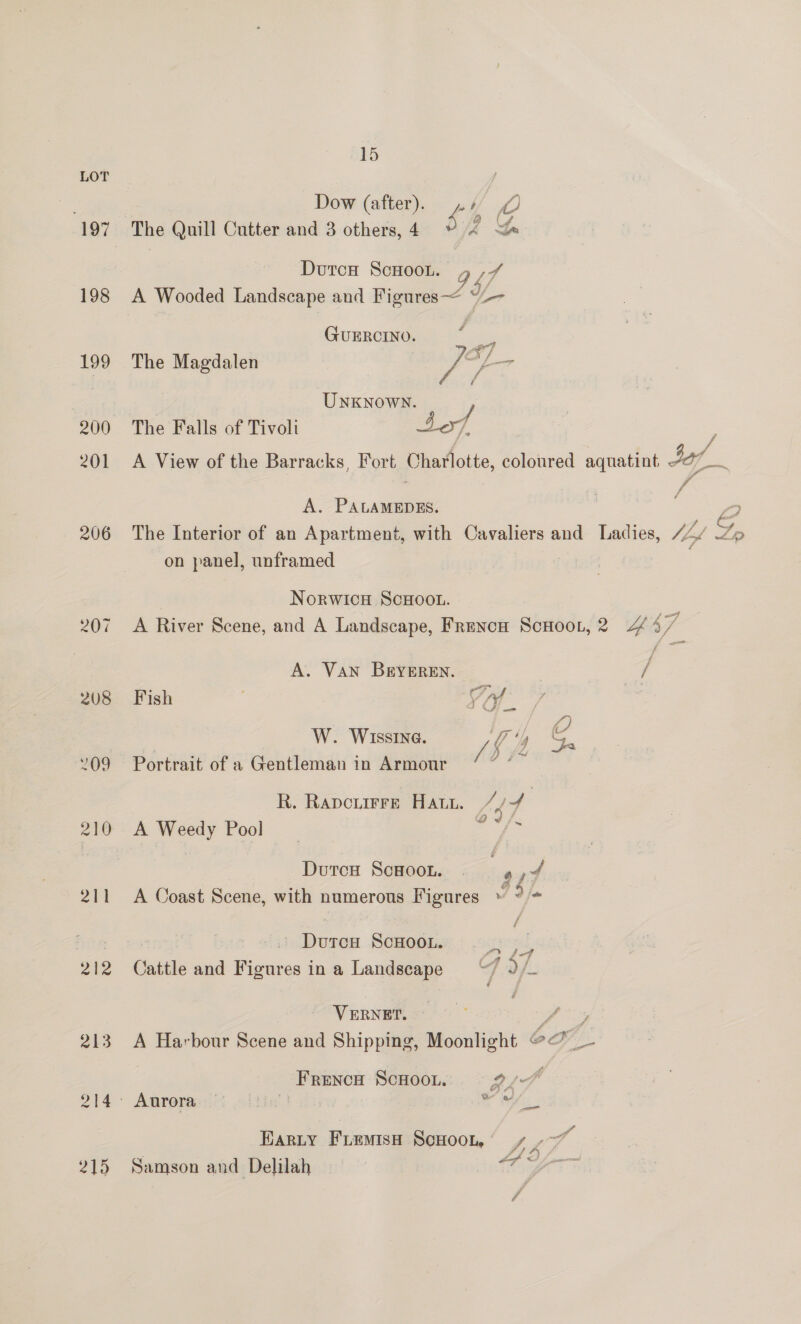 15
LOT
Dow (after).
197 The Quill Cutter and 3 others, 4
DUTCH SCHOOL.
198 A Wooded Landscape and Figures
GUERCINO.
199 The Magdalen
UNKNOWN.
200 The Falls of Tivoli
201 A View of the Barracks, Fort Charlotte, coloured aquatint
A. PALAMEDES.
206 The Interior of an Apartment, with Cavaliers and Ladies,
on panel, unframed
NORWICH SCHOOL.
207 A River Scene, and A Landscape, FRENCH SCHOOL, 2
A. VAN BEYEREN.
208 Fish
W. WISSING.
209 Portrait of a Gentleman in Armour
R. RADCLIFFE HALL.
210 A Weedy Pool
DUTCH SCHOOL.
211 A Coast Scene, with numerous Figures
DUTCH SCHOOL.
212 Cattle and Figures in a Landscape
VERNET.
213 A Harbour Scene and Shipping, Moonlight
FRENCH SCHOOL.
214 Aurora
EARLY FLEMISH SCHOOL,
215 Samson and Delilah